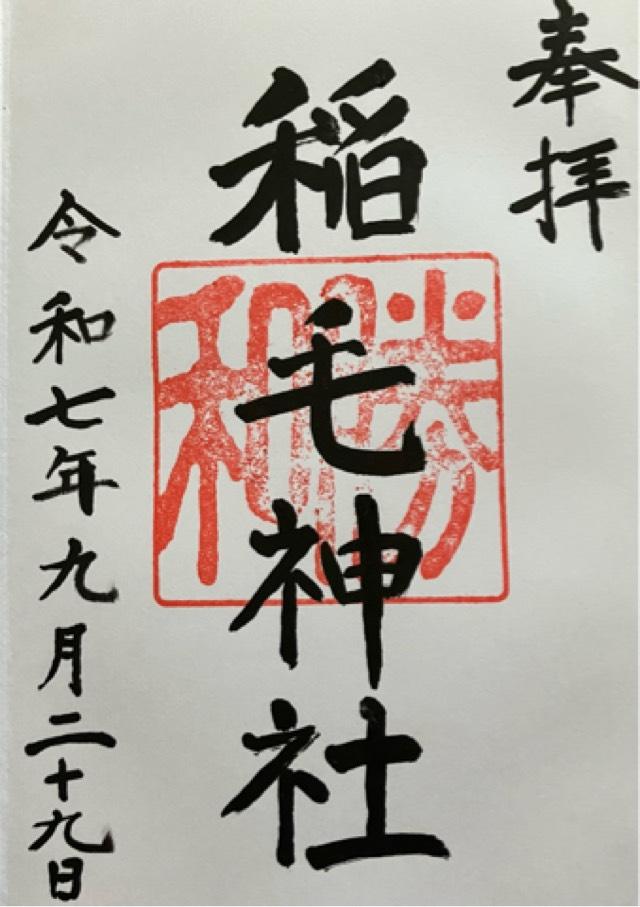 奉拝
稲毛神社
勝和
令和七年九月二十九日